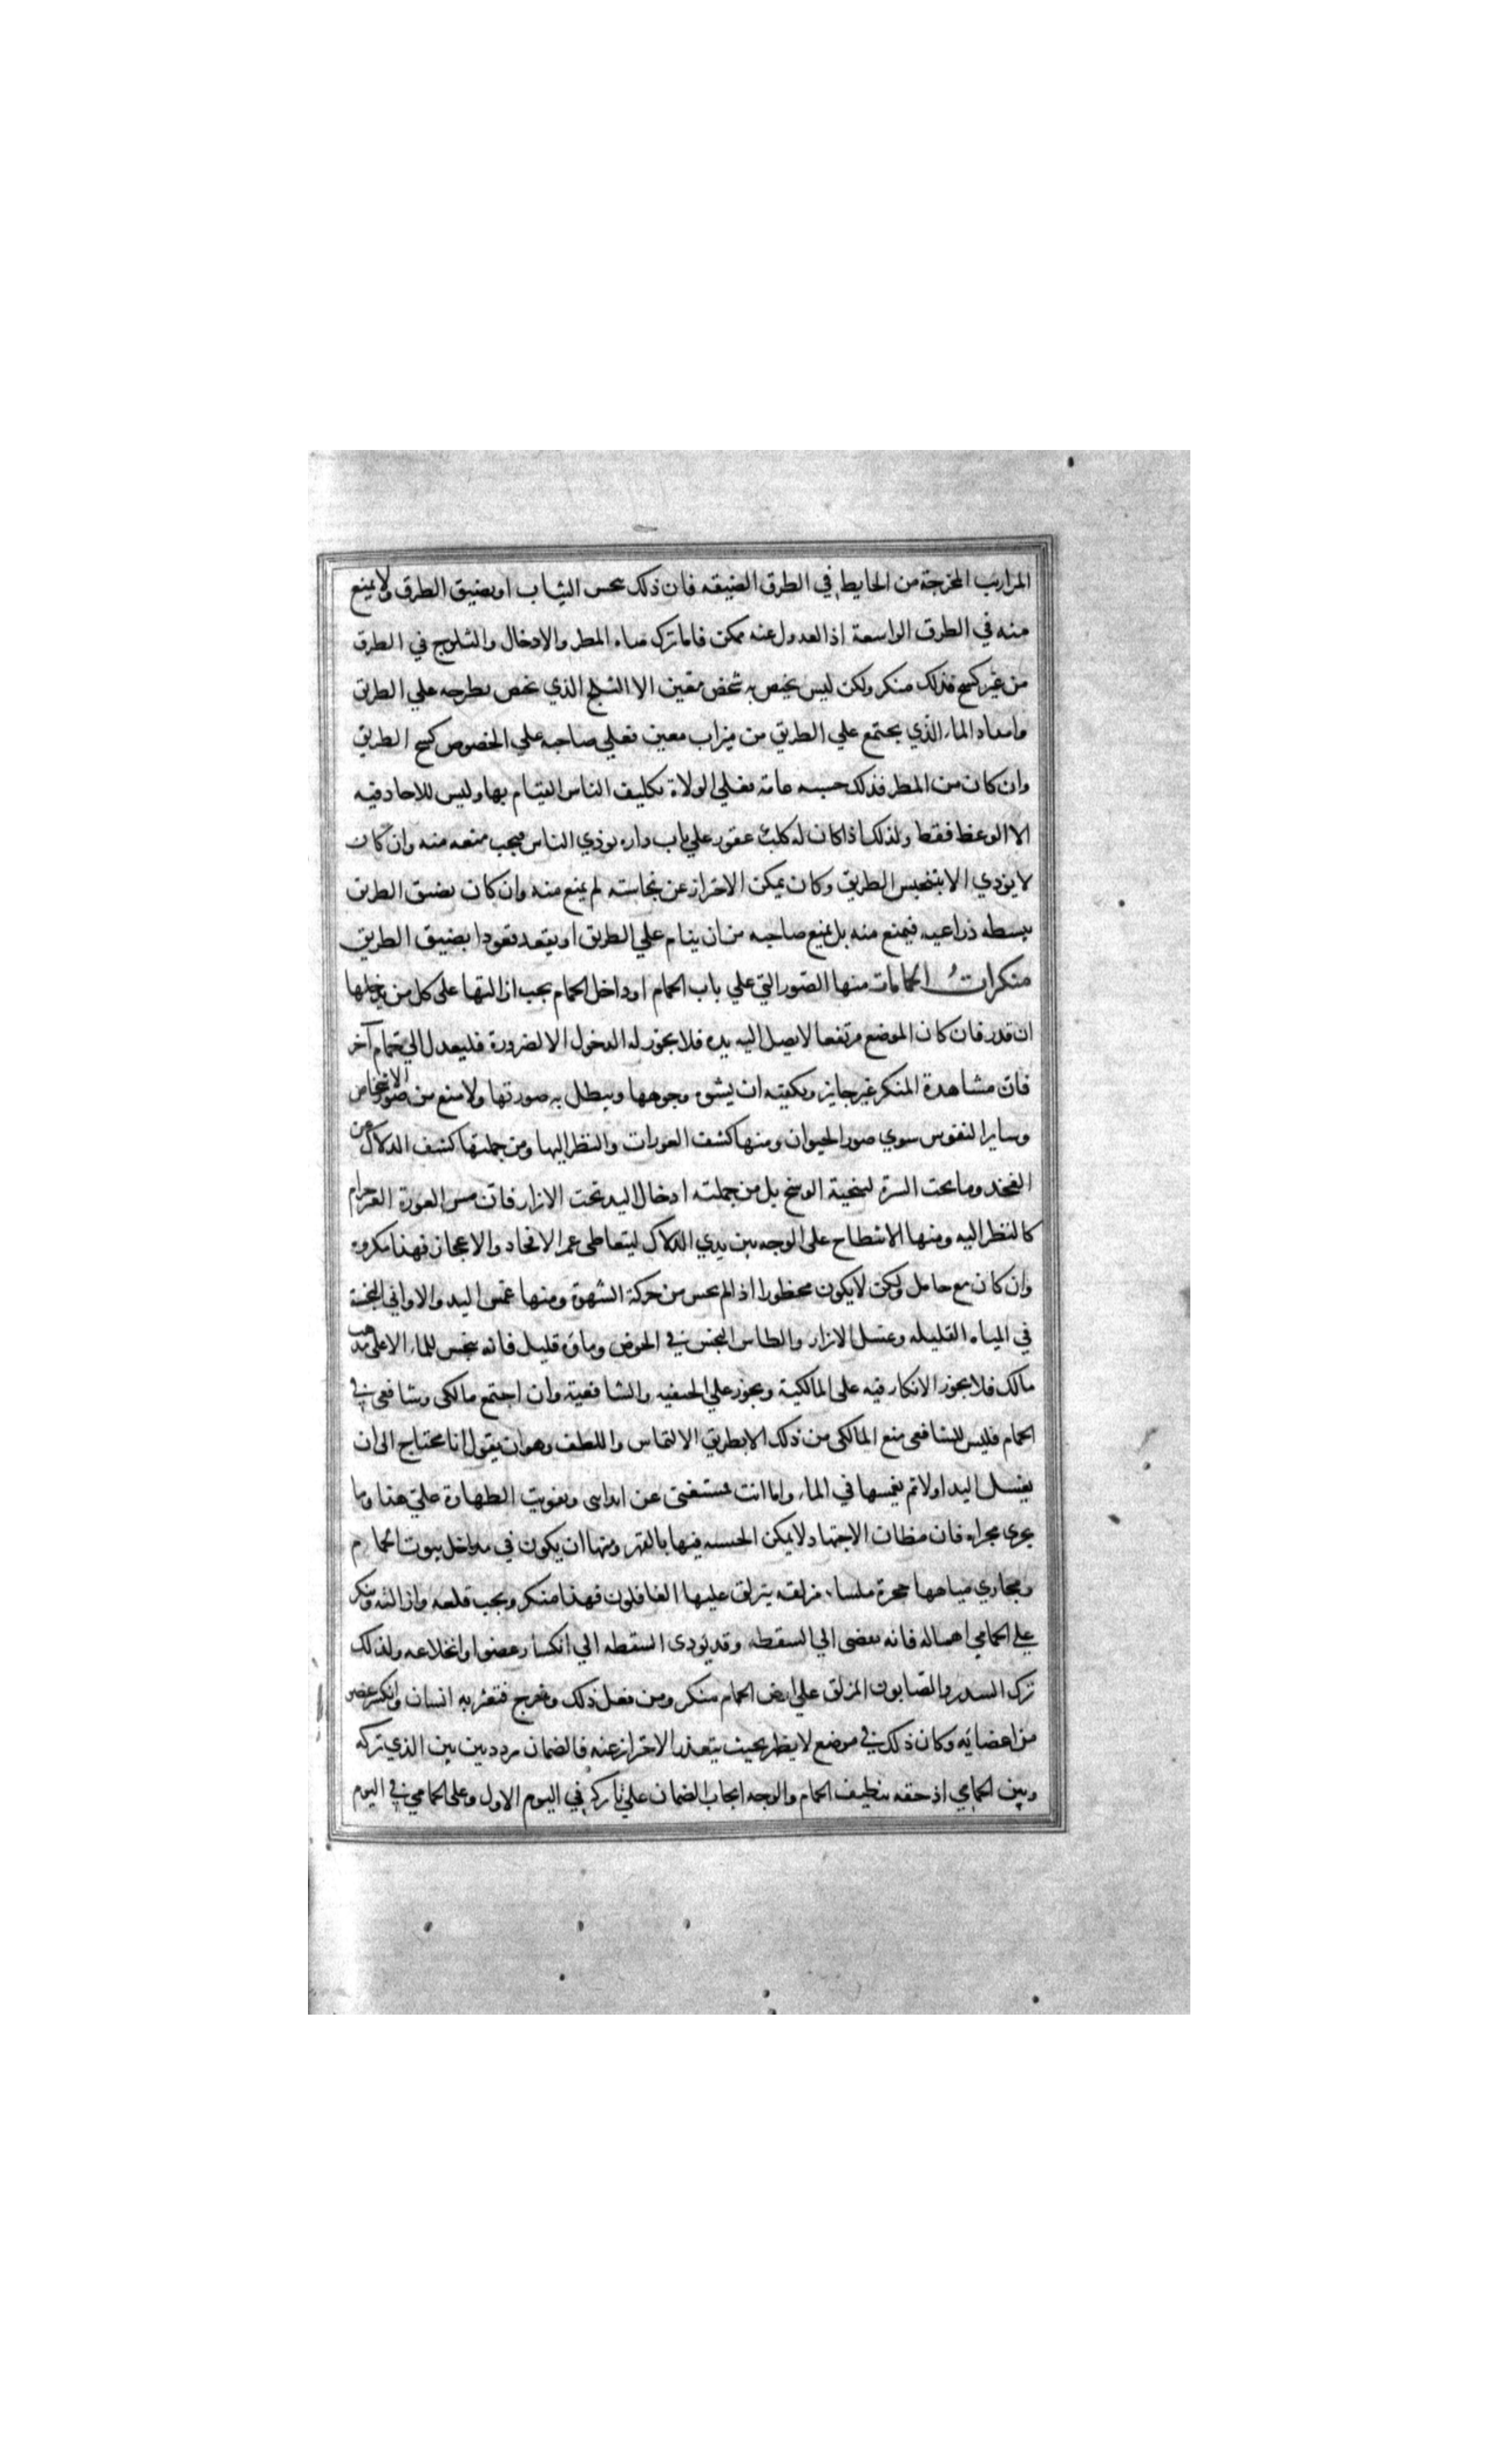 المزاريب المخرجة من الحايط في الطرق الضيقه فان ذلك ىنجس الثياب او يضيق الطرق ولا يمنع
منه في الطرق الواسعة اذ العدول عنه ممكن فاما ترك مياه المطر والاوحال والثلوج في الطرق
من غير كسح فذلك منكر ولكن ليس يختص به شخص معين الا الثلج الذي يختص بطرحه علي الطريق
واحد او الماء الذي يجتمع علي الطريق من ميزاب معين فعلي صاحبه علي الخصوص كسح الطريق
وان كان من المطر فذلك حسبه عامة فعلي الولاة تكليف الناس القيام بها وليس للاحاد فيه
الا الوعظ فقط ولذلك اذا كان له كلب عقور علي باب داره يوذي الناس فيجب منعه منه وان كان
لا يوذي الا بتنجيس الطريق وكان يمكن الاحتراز عن نجاسته لم يمنع منه وان كان يضيق الطريق
ببسطه ذراعيه فيمنع منه بل يمنع صاحبه من ان ينام علي الطريق او يقعد قعودا يضيق الطريق
منكرات الحمامات منها الصور التي علي باب الحمام او داخل الحمام يجب ازالتها علي كل من يدخلها
ان قدر فان كان الموضع مرتفعا لا يصل اليه يده فلا يجوز له الدخول الا لضرورة فليعدل الي حمام آخر
فان مشاهدة المنكر غير جايز ويكفيه ان يشوه وجوهها ويبطل به صورتها ولا يمنع من صور الاشخاص
وساير النقوش سوي صور الحيوان ومنها كشف العورات والنظر اليها ومن جملتها كشف الدلاك عن
الفخذ وما تحت السرة لتنحية الوسخ بل من جملته ادخال اليد تحت الازار فان مس العورة الغير حرام
كالنظر اليه ومنها الانبطاح علي الوجه بين يدي الدلاك ليتعاطي غمز الافخاذ والاعجاز فهذا مكروه
وان كان مع حايل ولكن لا يكون محظورا اذ لم يخش من حركة الشهوة ومنها غمس اليد والاواني النجسة
في المياه القليله وغسل الازار والطاس النجس في الحوض وماؤه قليل فانه ينجس للماء الا علي مذهب
مالك فلا يجوز الانكار فيه علي المالكية ويجوز علي الحنفيه والشافعية وان اجتمع مالكي وشافعي في
الحمام فليس للشافعي منع المالكي من ذلك الا بطريق الالتماس واللطف وهو ان يقول انا محتاج الي ان
يغسل اليد اولا ثم يغمسها في الماء واما انت مستغني عن ايذاى وتفويت الطهارة علي هذا وما
يجري مجراه فان مظان الاجتهاد لا يمكن الحسبه فيها بالقهر ومنها ان يكون في مداخل بيوت الحمام
ومجاري مياهها حجرة ملساء مزلقه يتزلق عليها الغافلون فهذا منكر ويجب قلعه وازالته وينكر
علي الحمامي اهماله فانه يفضي الي السقطه وقد يودي السقطه الي انكسار عضو او انخلاعه ولذلك
ترك السدر والصابون المزلق علي ارض الحمام منكر ومن فعل ذلك وخرج فتعثر به انسان وانكسر عضو
من اعضايه وكان ذلك في موضع لا يظهر بحيث يتعذر الاحتراز عنه فالضمان مردد بين بين الذي تركه
وبين الحمامي اذ حقه تنظيف الحمام والوجه ايجاب الضمان علي تاركه في اليوم الاول وعلي الحمامي في اليوم